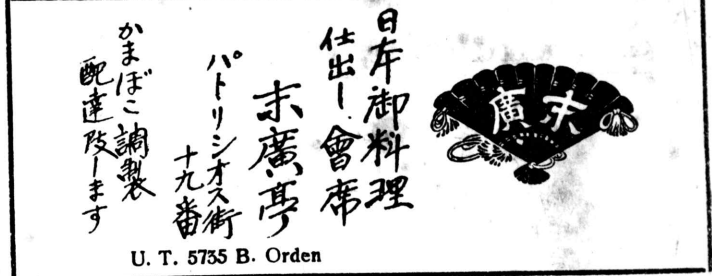 日本御料理
仕出し會席
末廣亭
パトリシオス街
十九番
かまぼこ調製
配達致します
末廣
U. T. 5735 B. Orden